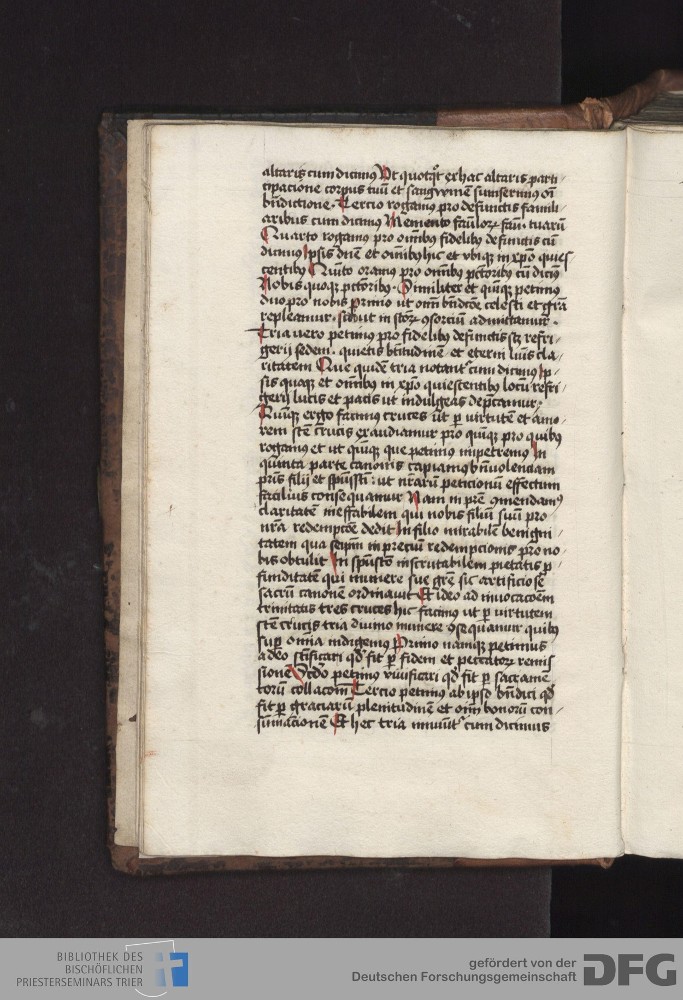 altaris cum dicimus Ut quotqt ex hac altaris parti
cipacione corpus tuū et sangwinem sumserimus oī
bn̄dictione. Tercio rogamus pro defunctis famili
aribus cum dicimus Memento famulorum fam. tuarū
Quarto rogamus pro omībus fidelibus defunctis cū
dicimus Ipsis dn̄e et omībus hic et ubique in xp̄o quies
centibus Quinto oramus pro omībus peccatoribus cū dicimus
Nobis quoque peccatoribus. Similiter et quinque petimus
duo pro nobis Primo ut omī bn̄dictōne celesti et grā
repleamur. secundo ut in sctōrum consorciū admittamur.
Tria vero petimus pro fidelibus defunctis scilicet refri
gerii sedem. quietis bt̄itudinem et eterni luīs cla
ritatem Que quidē tria notantur cum dicimus Ip
sis quoque et omībus in xp̄o quiescentibus locū refri
gerii lucis et pacis ut indulgeas dep̄camur.
Quinque ergo facimus cruces ut per virtutē et amo
rem scte crucis exaudiamur pro quinque pro quibus
rogamus et ut quinque que petimus impetremus In
quinta parte canonis capiamus bn̄volendam
pr̄is filii et spūssctī: ut nr̄arū peticionū effectum
facilius consequamur Nam in pr̄e commendamus
claritatē ineffabilem qui nobis filiū suū pro
nr̄a redempcōe dedit In filio mirabilē benigni
tatem qua seipm̄ in preciū redempcionis pro no
bis obtulit In spūsctō inscrutabilem pietatis p
funditatē qui munere sue grē sic artificiose
sacrū canonē ordinavit Et ideo ad invocacōem
trinitatis tres cruces hic facimus ut per virtutem
scte crucis tria divino munere consequamur quibus
super omnia indigemus Primo namque petimus
a deo sctificari quod fit per fidem et peccatorum remis
sionē Secūdo petimus vivificari quod fit per sacramē
torū collacōem Tercio petimus ab ipso bn̄dici quod
fit per graciarū plenitudinē et oīm bonorū con
sumacionē Et hec tria innuuntur cum dicimus
BIBLIOTHEK DES
BISCHÖFLICHEN
PRIESTERSEMINARS TRIER
gefördert von der
Deutschen Forschungsgemeinschaft
DFG